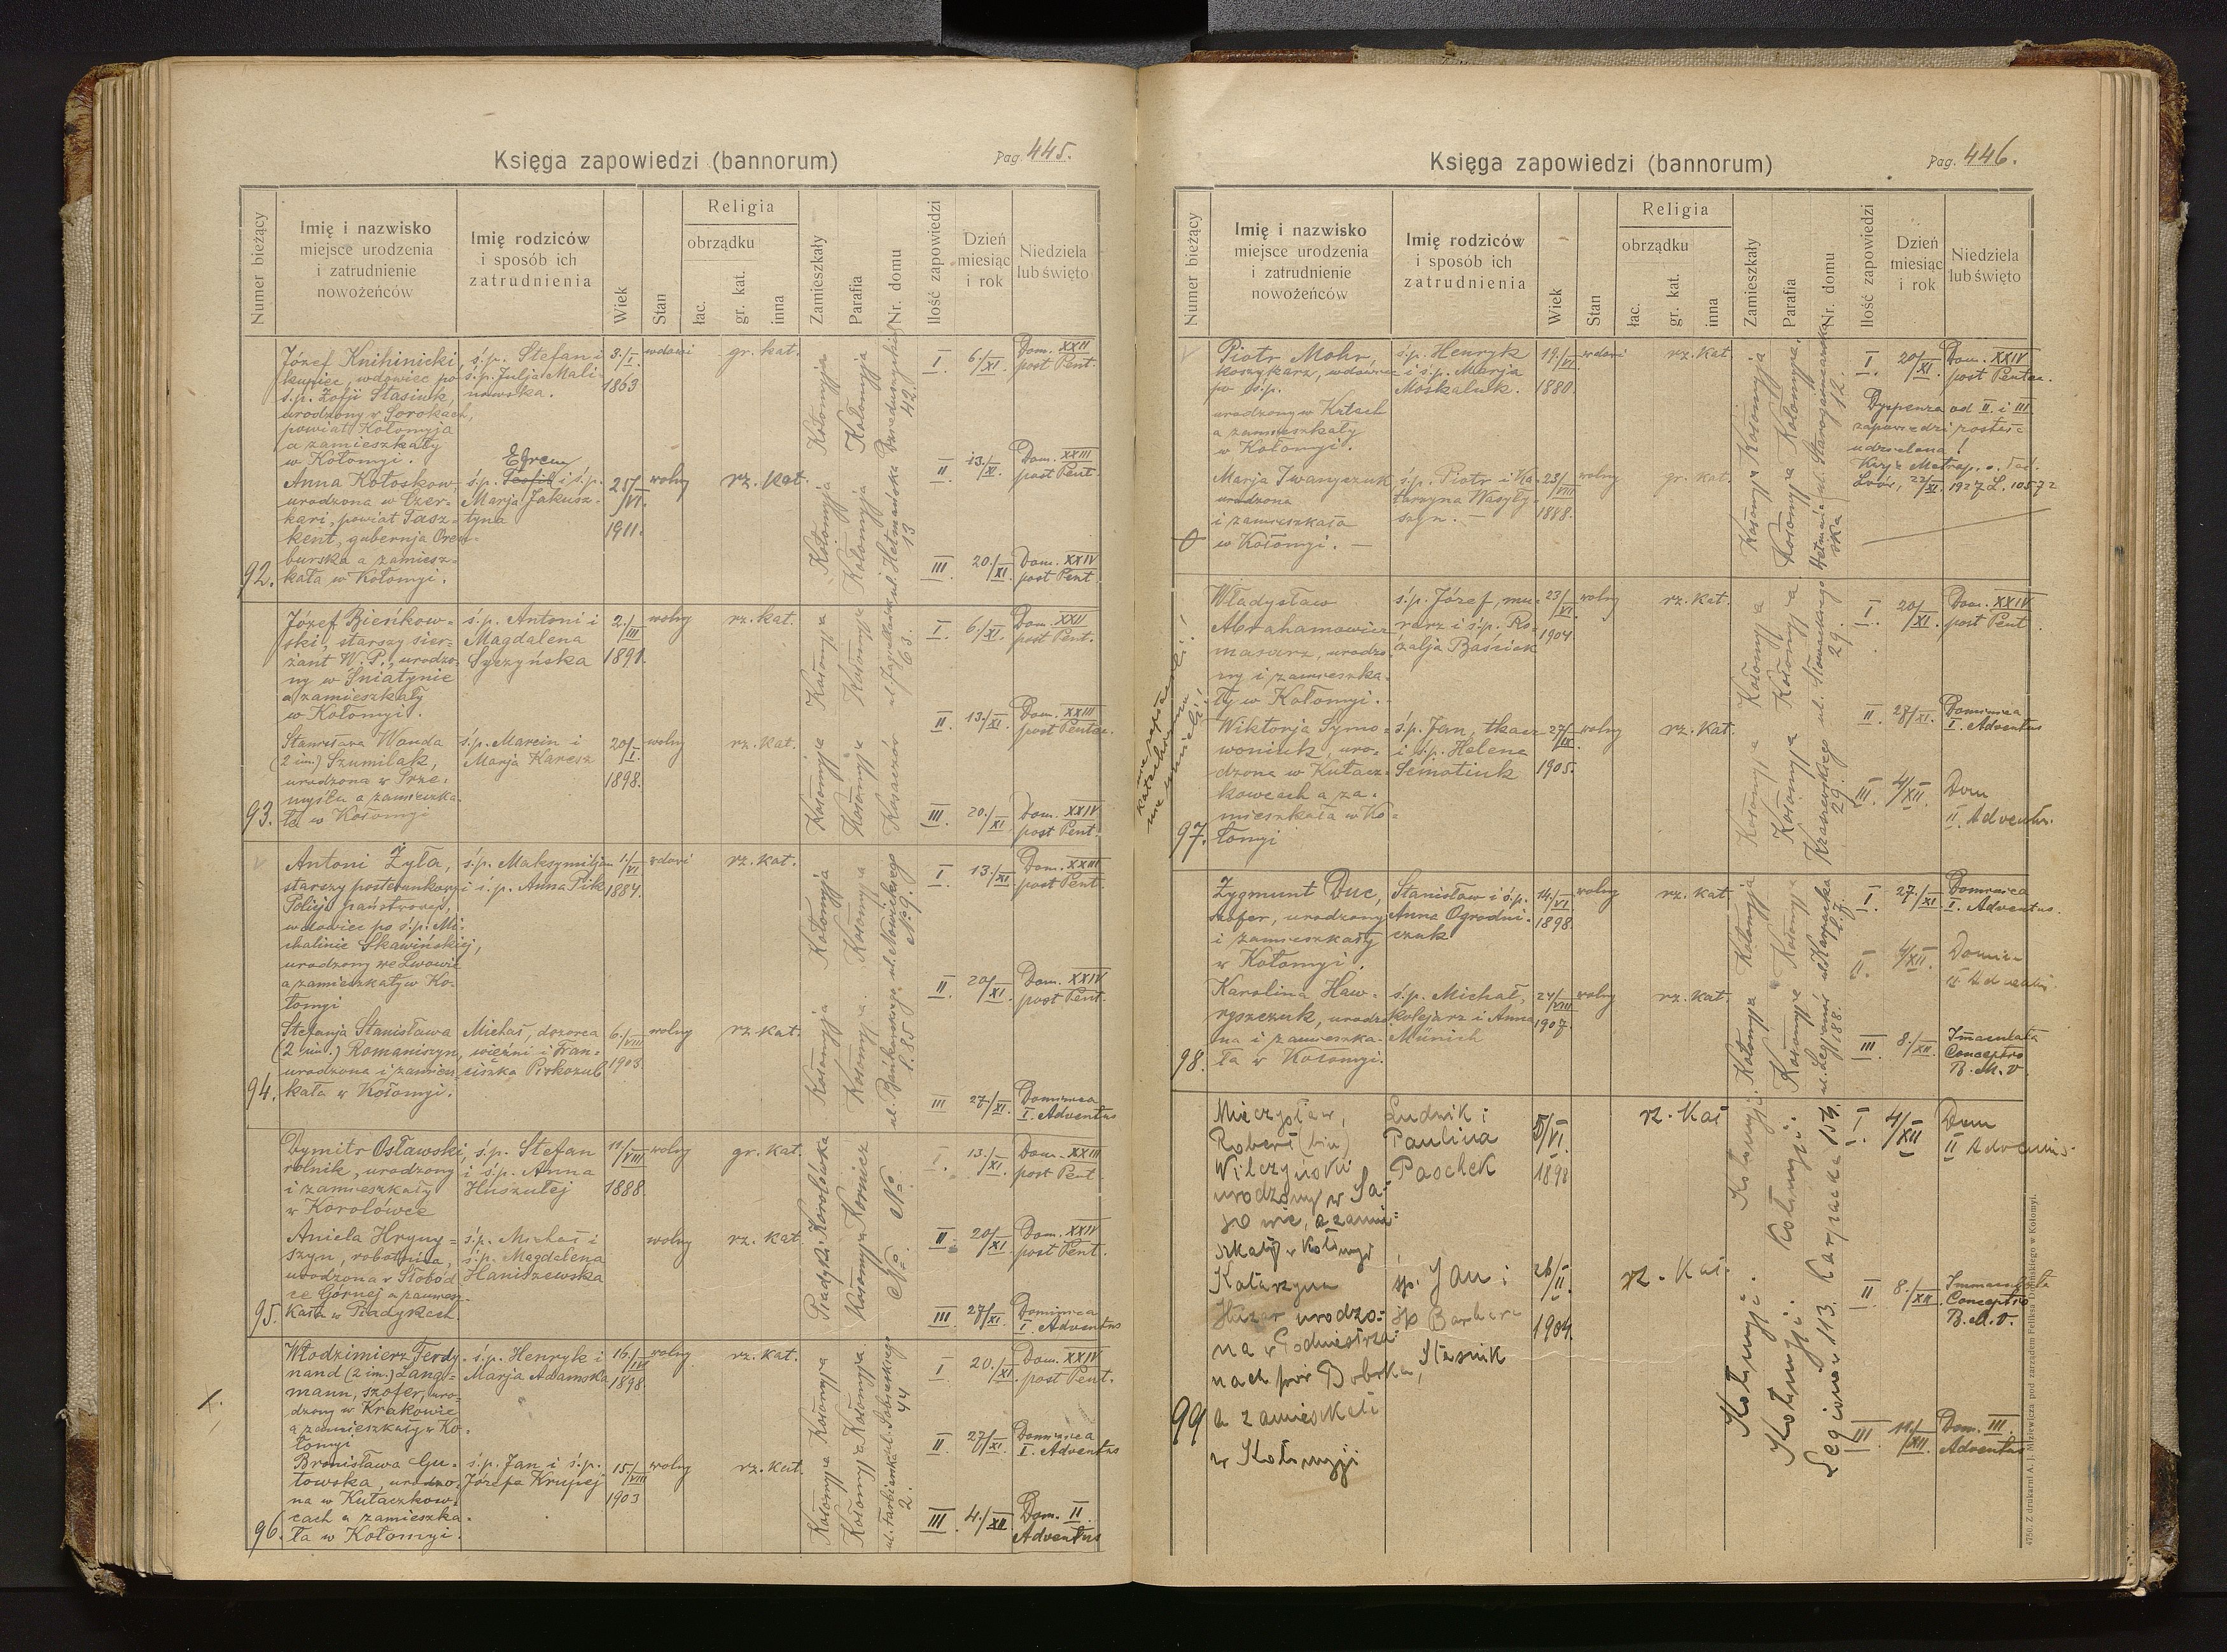 Księga zapowiedzi (bannorum)
Pag. 445.
Numer bieżący
Imię i nazwisko
miejsce urodzenia
i zatrudnienie
nowożeńców
Imię rodziców
i sposób ich
zatrudnienia
Wiek
Stan
Religia
obrządku
łac.
gr. kat.
inna
Zamieszkały
Parafia
Nr. domu
Ilość zapowiedzi
Dzień
miesiąc
i rok
Niedziela
lub święto
92.
Józef Knihinicki,
kupiec, wdowiec po
ś.p. Zofji Stasiuk,
urodzony w Sorokach,
powiat Kołomyja
a zamieszkały
w Kołomyi.
ś.p. Stefan i
ś.p. Julja Mali-
nowska.
3./I.
1863
wdowi
gr. kat.
Kołomyja
Kołomyja
Dzieduszyckich
42.
Anna Kołoskow
urodzona w Czer-
kari, powiat Tasz-
kent, gubernja Oren-
burska a zamiesz-
kała w Kołomyi.
Efrem
ś.p. Teofil i ś.p.
Marja Jakusz-
tyna
25/VI.
1911.
wolny
rz. kat.
Kołomyja
Kołomyja
ul. Hetmańska
13
I. 6./XI. Dom. XXII
post Pent.
II 13./XI. Dom. XXIII
post Pent
III 20./XI. Dom. XXIV
post Pent.
93.
Józef Bieńkow-
ski, starszy sier-
żant W. P., urodzo-
ny w Śniatynie
a zamieszkały
w Kołomyi.
ś.p. Antoni i
Magdalena
Syczyńska
2./III
1891.
wolny
rz. kat.
Kołomyja
Kołomyja
ul. Jagiellońska
63.
Stanisława Wanda
(2 im.) Szumilak,
urodzona w Prze-
myślu a zamieszka-
ła w Kołomyi
ś.p. Marcin i
Marja Karesz
20/I.
1898.
wolny
rz. kat.
Kołomyja
Kołomyja
Kosaczów
I. 6./XI. Dom. XXII
post Pent.
II. 13./XI. Dom. XXIII
post Pentec.
III. 20./XI. Dom. XXIV
post Pent.
94.
Antoni Żyła,
starszy posterunkowy
Policji państwowej,
wdowiec po ś.p. Mi-
chalinie Skawińskiej,
urodzony we Lwowie
a zamieszkały w Ko-
łomyi
ś.p. Maksymiljan
i ś.p. Anna Pik
1./VI
1884.
wdowi
rz. kat.
Kołomyja
Kołomyja
ul. Nowickiego
№ 9.
Stefanja Stanisława
(2 im.) Romaniszyn,
urodzona i zamiesz-
kała w Kołomyi.
Michał, dozorca
więźni i Fran-
ciszka Pirkozub
6./VIII
1903
wolny
rz. kat.
Kołomyja
Kołomyja
l. 85
I 13./XI Dom. XXIII
post Pent.
II 20/XI. Dom. XXIV
post Pent.
III 27/XI. Dominica
I. Adventus
95.
Dymitr Osławski,
rolnik, urodzony
i zamieszkały
w Korolówce
ś.p. Stefan
i ś.p. Anna
Huszułej
11/VIII
1888.
wolny
gr. kat.
Korolówka
Kornicz
№
Aniela Hryny-
szyn, robotnica,
urodzona w Słobód-
ce Górnej a zamiesz-
kała w Piadykach.
ś.p. Michał i
ś.p. Magdalena
Haniszewska
wolny
rz. kat.
Piadyki
Kołomyja
№
I. 13./XI. Dom. XXIII
post Pent
II. 20/XI. Dom. XXIV
post Pent.
III 27/XI. Dominica
I. Adventus
96.
Włodzimierz Ferdy-
nand (2 im.) Lang-
mann, szofer, uro-
dzony w Krakowie
a zamieszkały w Ko-
łomyi
ś.p. Henryk i
Marja Adamska
16./IV
1898.
wolny
rz. kat.
Kołomyja
Kołomyja
ul. Sobieskiego
44
Bronisława Gu-
towska, urodzo-
na w Kułaczkow-
cach a zamieszka-
ła w Kołomyi.
ś.p. Jan i ś.p.
Józefa Krupej
15./VIII
1903
wolny
rz. kat.
Kołomyja
Kołomyja
ul. Farbiarska
2.
I 20./XI. Dom. XXIV
post Pent.
II 27/XI. Dominica
I. Adventus
III 4./XII Dom. II
Adventus
Księga zapowiedzi (bannorum)
Pag. 446.
Numer bieżący
Imię i nazwisko
miejsce urodzenia
i zatrudnienie
nowożeńców
Imię rodziców
i sposób ich
zatrudnienia
Wiek
Stan
Religia
obrządku
łac.
gr. kat.
inna
Zamieszkały
Parafia
Nr. domu
Ilość zapowiedzi
Dzień
miesiąc
i rok
Niedziela
lub święto
Piotr Mohr,
koszykarz, wdowiec
po ś.p.
urodzony w Kutach
a zamieszkały
w Kołomyi.
ś.p. Henryk
i ś.p. Marja
Moskaluk.
19./VI
1880.
wdowi
rz. kat
Kołomyja
Kołomyja.
ul. Starogencarska
12.
Marja Iwanyczuk
urodzona
i zamieszkała
w Kołomyi. —
ś.p. Piotr i Ka-
tarzyna Wasyły-
szyn. —
23/VIII
1888.
wolny
gr. kat.
Kołomyja
Kołomyja
Hetmańska
I. 20/XI. Dom. XXIV
post Pentec.
Dyspenza od II. i III.
zapowiedzi została
udzielona!
Kurja Metrop. o. łac.
Lwów, 22/XI. 1927 L. 10572
97.
nie umieli!
Władysław
Abrahamowicz
masarz, urodzo-
ny i zamieszka-
ły w Kołomyi.
ś.p. Józef, mu-
rarz i ś.p. Ro-
zalja Baściak
23/XI.
1904
wolny
rz. kat.
Kołomyja
Kołomyja
ul. Słowackiego
29.
Wiktorja Symo-
woniuk, uro-
dzona w Kułacz-
kowcach a za-
mieszkała w Ko-
łomyi
ś.p. Jan, tkacz
i ś.p. Helena
Semotiuk
27/IX.
1905.
wolny
rz. kat.
Kołomyja
Kołomyja
Kraszewskiego
29.
I 20/XI. Dom. XXIV
post Pent.
II 27/XI. Dominica
I. Adventus
III. 4/XII. Dom
II. Adventus.
98.
Zygmunt Duc,
szofer, urodzony
i zamieszkały
w Kołomyi.
Stanisław i ś.p.
Anna Ogrodni-
czuk
14./VI
1898.
wolny
rz. kat
Kołomyja
Kołomyja
ul. Karpacka
l. 7.
Karolina Haw-
ryszczuk, urodzo-
na i zamieszka-
ła w Kołomyi.
ś.p. Michał,
kolejarz i Anna
Münich
24/VIII
1907.
wolny
rz. kat.
Kołomyja
Kołomyja
ul. Legionów
188.
I. 27./XI Dominica
I. Adventus.
II. 4/XII. Domin.
II. Adventus.
III 8./XII. Imaculata
Conceptio
B. M. V.
99
Mieczysław,
Robert (2 im)
Wilczyński
urodzony w Sa-
gowie, a zamie-
szkały w Kołomyi
Ludwik i
Paulina
Paschek
5/VI.
1898
rz. Kat
Kołomyji.
Kołomyji.
Karpacka 159.
Katarzyna
Huzar urodzo-
na w Podmiestrza-
nach pow Bobrka,
a zamieszkała
w Kołomyji
śp. Jan i
śp Barbara
Stasnik
26/II.
1904.
rz. Kat.
Kołomyji.
Kołomyji.
Legionów 113.
I. 4/XII Dom
II Adventus.
II 8./XII. Immaculata
Conceptio
B. M. V.
III 11./XII. Dom. III.
Adventus
4750. Z drukarni A. J. Miziewicza pod zarządem Feliksa Dudzińskiego w Kołomyi.